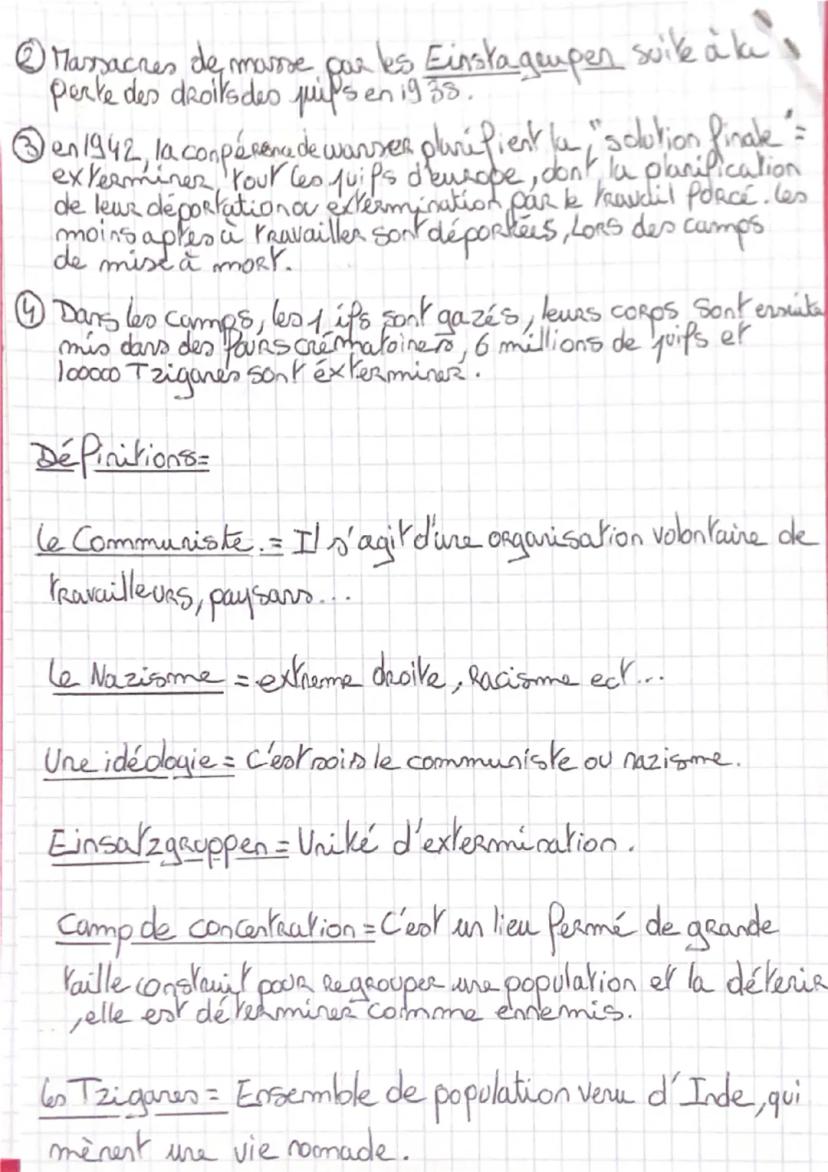 ② Massacres de masse par les Einstagrupen suite à la
perte des droits des juifs en 1938.
③ en 1942, la conférence de wanser planifient la "solution finale" =
exterminer tout les juifs d'europe, dont la planification
de leur déportation ou extermination par le travail forcé. les
moins aptes à travailler sont déportées, Lors des camps
de mise à mort.
④ Dans les camps, les juifs sont gazés, leurs corps sont ensuite
mis dans des fours crématoiners, 6 millions de juifs et
100000 Tziganes sont éxterminer.
Définitions=
Le Communiste.= Il s'agit d'une organisation volontaire de
travailleurs, paysans...
Le Nazisme = extreme droite, Racisme ect...
Une idéologie = C'est sois le communiste ou nazisme.
Einsatzgruppen = Unité d'extermination.
Camp de concentration = C'est un lieu fermé de grande
taille construit pour regrouper une population et la détenir
, elle est déterminer comme ennemis.
Les Tziganes = Ensemble de population venu d'Inde, qui
mènent une vie nomade.